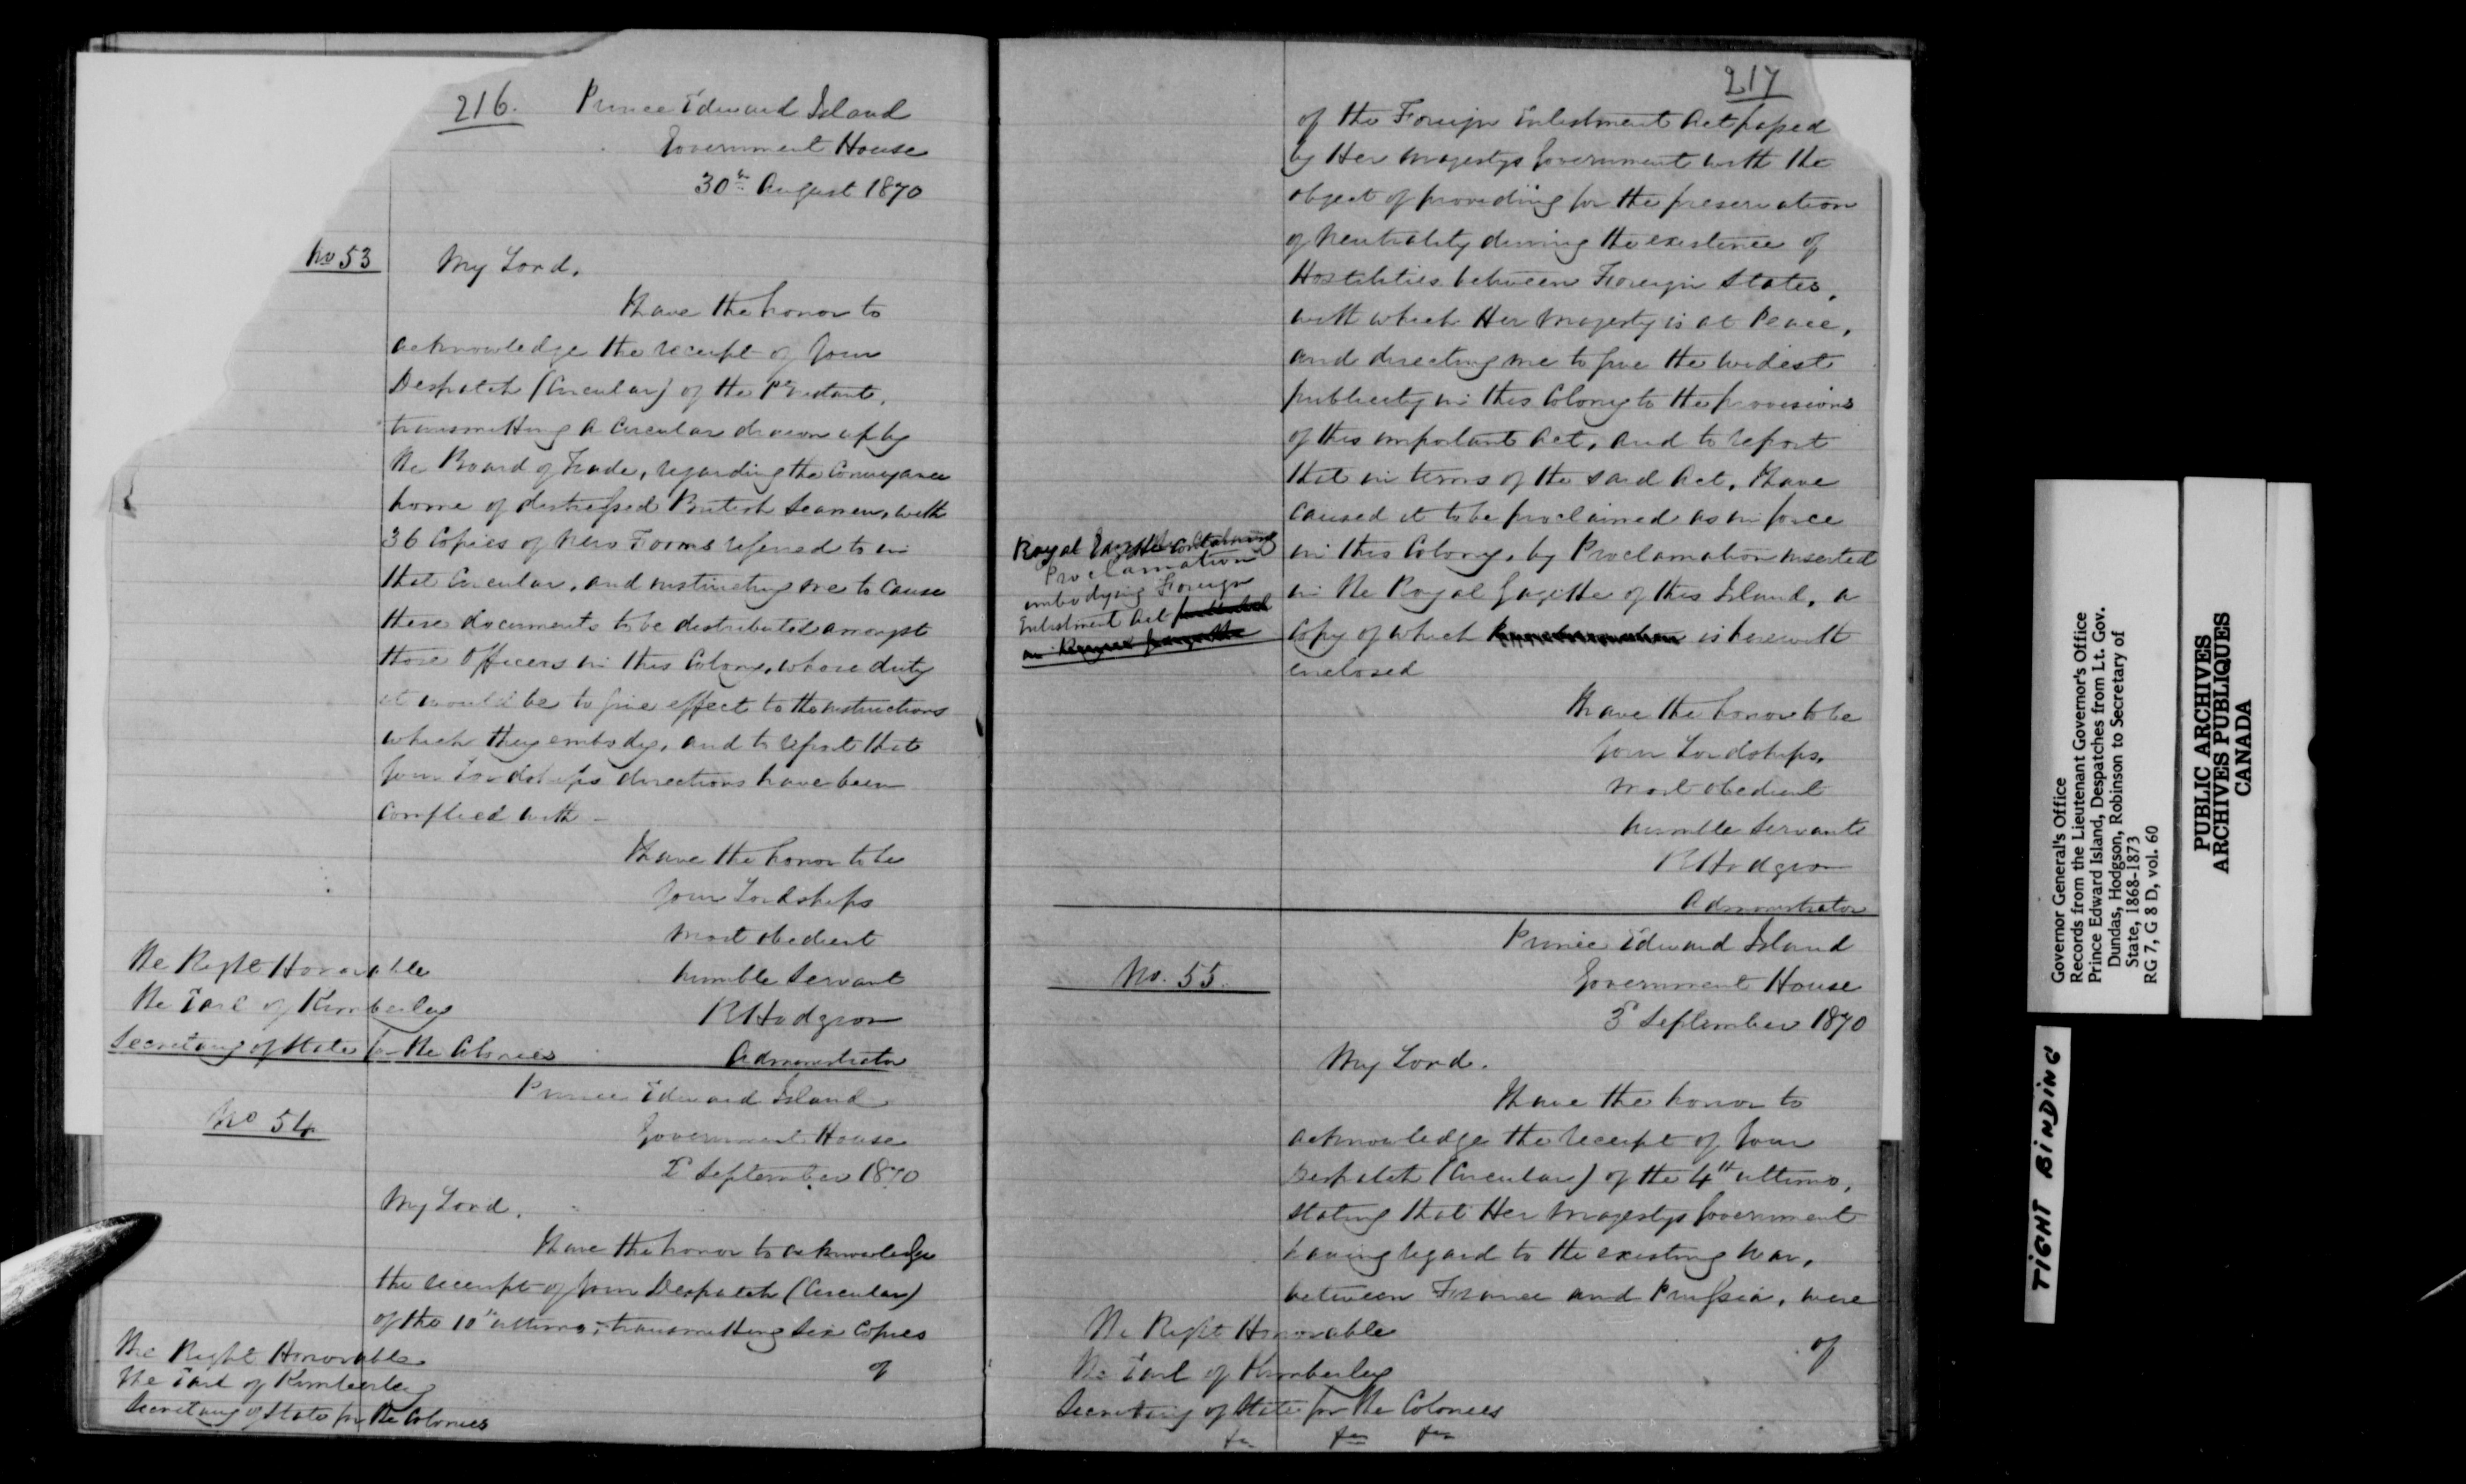 216.
Prince Edward Island
Government House
30th August 1870
No 53
My Lord,
I have the honor to
acknowledge the receipt of Your
Despatch (Circular) of the 1st Instant,
transmitting a Circular drawn up by
the Board of Trade, regarding the Conveyance
home of distressed British Seamen, with
36 Copies of New Forms referred to in
that Circular, and instructing me to cause
these documents to be distributed amongst
those Officers in this Colony, whose duty
it would be to give effect to the instructions
which they embody, and to report that
Your Lordships directions have been
complied with -
I have the honor to be
Your Lordships
most obedient
humble Servant
R Hodgson
Administrator
The Right Honorable
The Earl of Kimberley
Secretary of State for the Colonies
No 54
Prince Edward Island
Government House
2d September 1870
My Lord,
I have the honor to acknowledge
the receipt of Your Despatch (Circular)
of the 10th ultimo, transmitting Six Copies
of
The Right Honorable
The Earl of Kimberley
Secretary of State for the Colonies
217
of the Foreign Enlistment Act passed
by Her Majestys Government with the
object of providing for the preservation
of Neutrality during the existence of
Hostilities between Foreign States,
with which Her Majesty is at Peace,
and directing me to give the widest
publicity in this Colony to the provisions
of this important Act, and to report
that in terms of the said Act, I have
caused it to be proclaimed as in force
in this Colony, by Proclamation inserted
in the Royal Gazette of this Island, a
Copy of which is herewith
enclosed
Royal Gazette containing
Proclamation
embodying Foreign
Enlistment Act published
in Royal Gazette
I have the honor to be
Your Lordships,
most obedient
humble Servant
R Hodgson
Administrator
No. 55.
Prince Edward Island
Government House
3d September 1870
My Lord.
I have the honor to
acknowledge the receipt of Your
Despatch (Circular) of the 4th ultimo,
stating that Her Majestys Government
having regard to the existing War,
between France and Prussia, were
of
The Right Honorable
The Earl of Kimberley
Secretary of State for the Colonies
Governor General's Office
Records from the Lieutenant Governor's Office
Prince Edward Island, Despatches from Lt. Gov.
Dundas, Hodgson, Robinson to Secretary of
State, 1868-1873
RG 7, G 8 D, vol. 60
PUBLIC ARCHIVES
ARCHIVES PUBLIQUES
CANADA
TIGHT BINDING